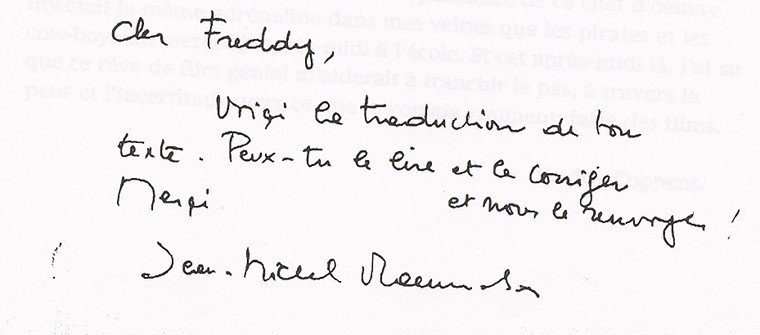 de ce chef d'oeuvre
injectait la même adrénaline dans mes veines que les pirates et les
cow-boys midi à l'école. Et cet après-midi là, j'ai su
que ce rêve de film génial m'aiderait à franchir le pas, à travers la
peur et l'incertitude des films.
Coppens
Cher Freddy,
Voici la traduction de ton
texte. Peux-tu le lire et le corriger
Merci et nous le renvoyer !
Jean-Michel